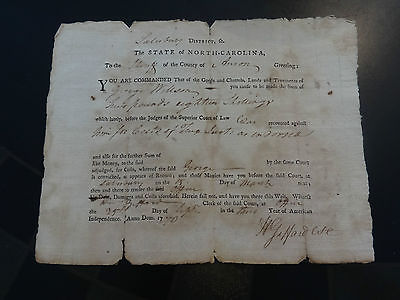 Salisbury DISTRICT, &c.
The STATE of NORTH-CAROLINA,
To the Sheriff of the County of Anson Greeting:
YOU ARE COMMANDED That of the Goods and Chattels, Lands and Tenements of
George Wilson — you cause to be made the Sum of
pounds eighteen Shillings
which lately, before the Judges of the Superior Court of Law recovered against
him for Costs of Suit as endorsed
and also the further Sum of
like Money, to the said by the same Court
adjudged, for Costs, whereof the said George —
is convicted, as appears of Record; and those Monies have you before the said Court at
Salisbury on the Day of March next,
then and there to render the said
Damages and Costs aforesaid. Herein fail not, and have you there this Writ. Witness
Clerk of the said Court, at Office
the Day of Sept in the Year of American
Independence. [Anno Dom. 17
Giffard Clk